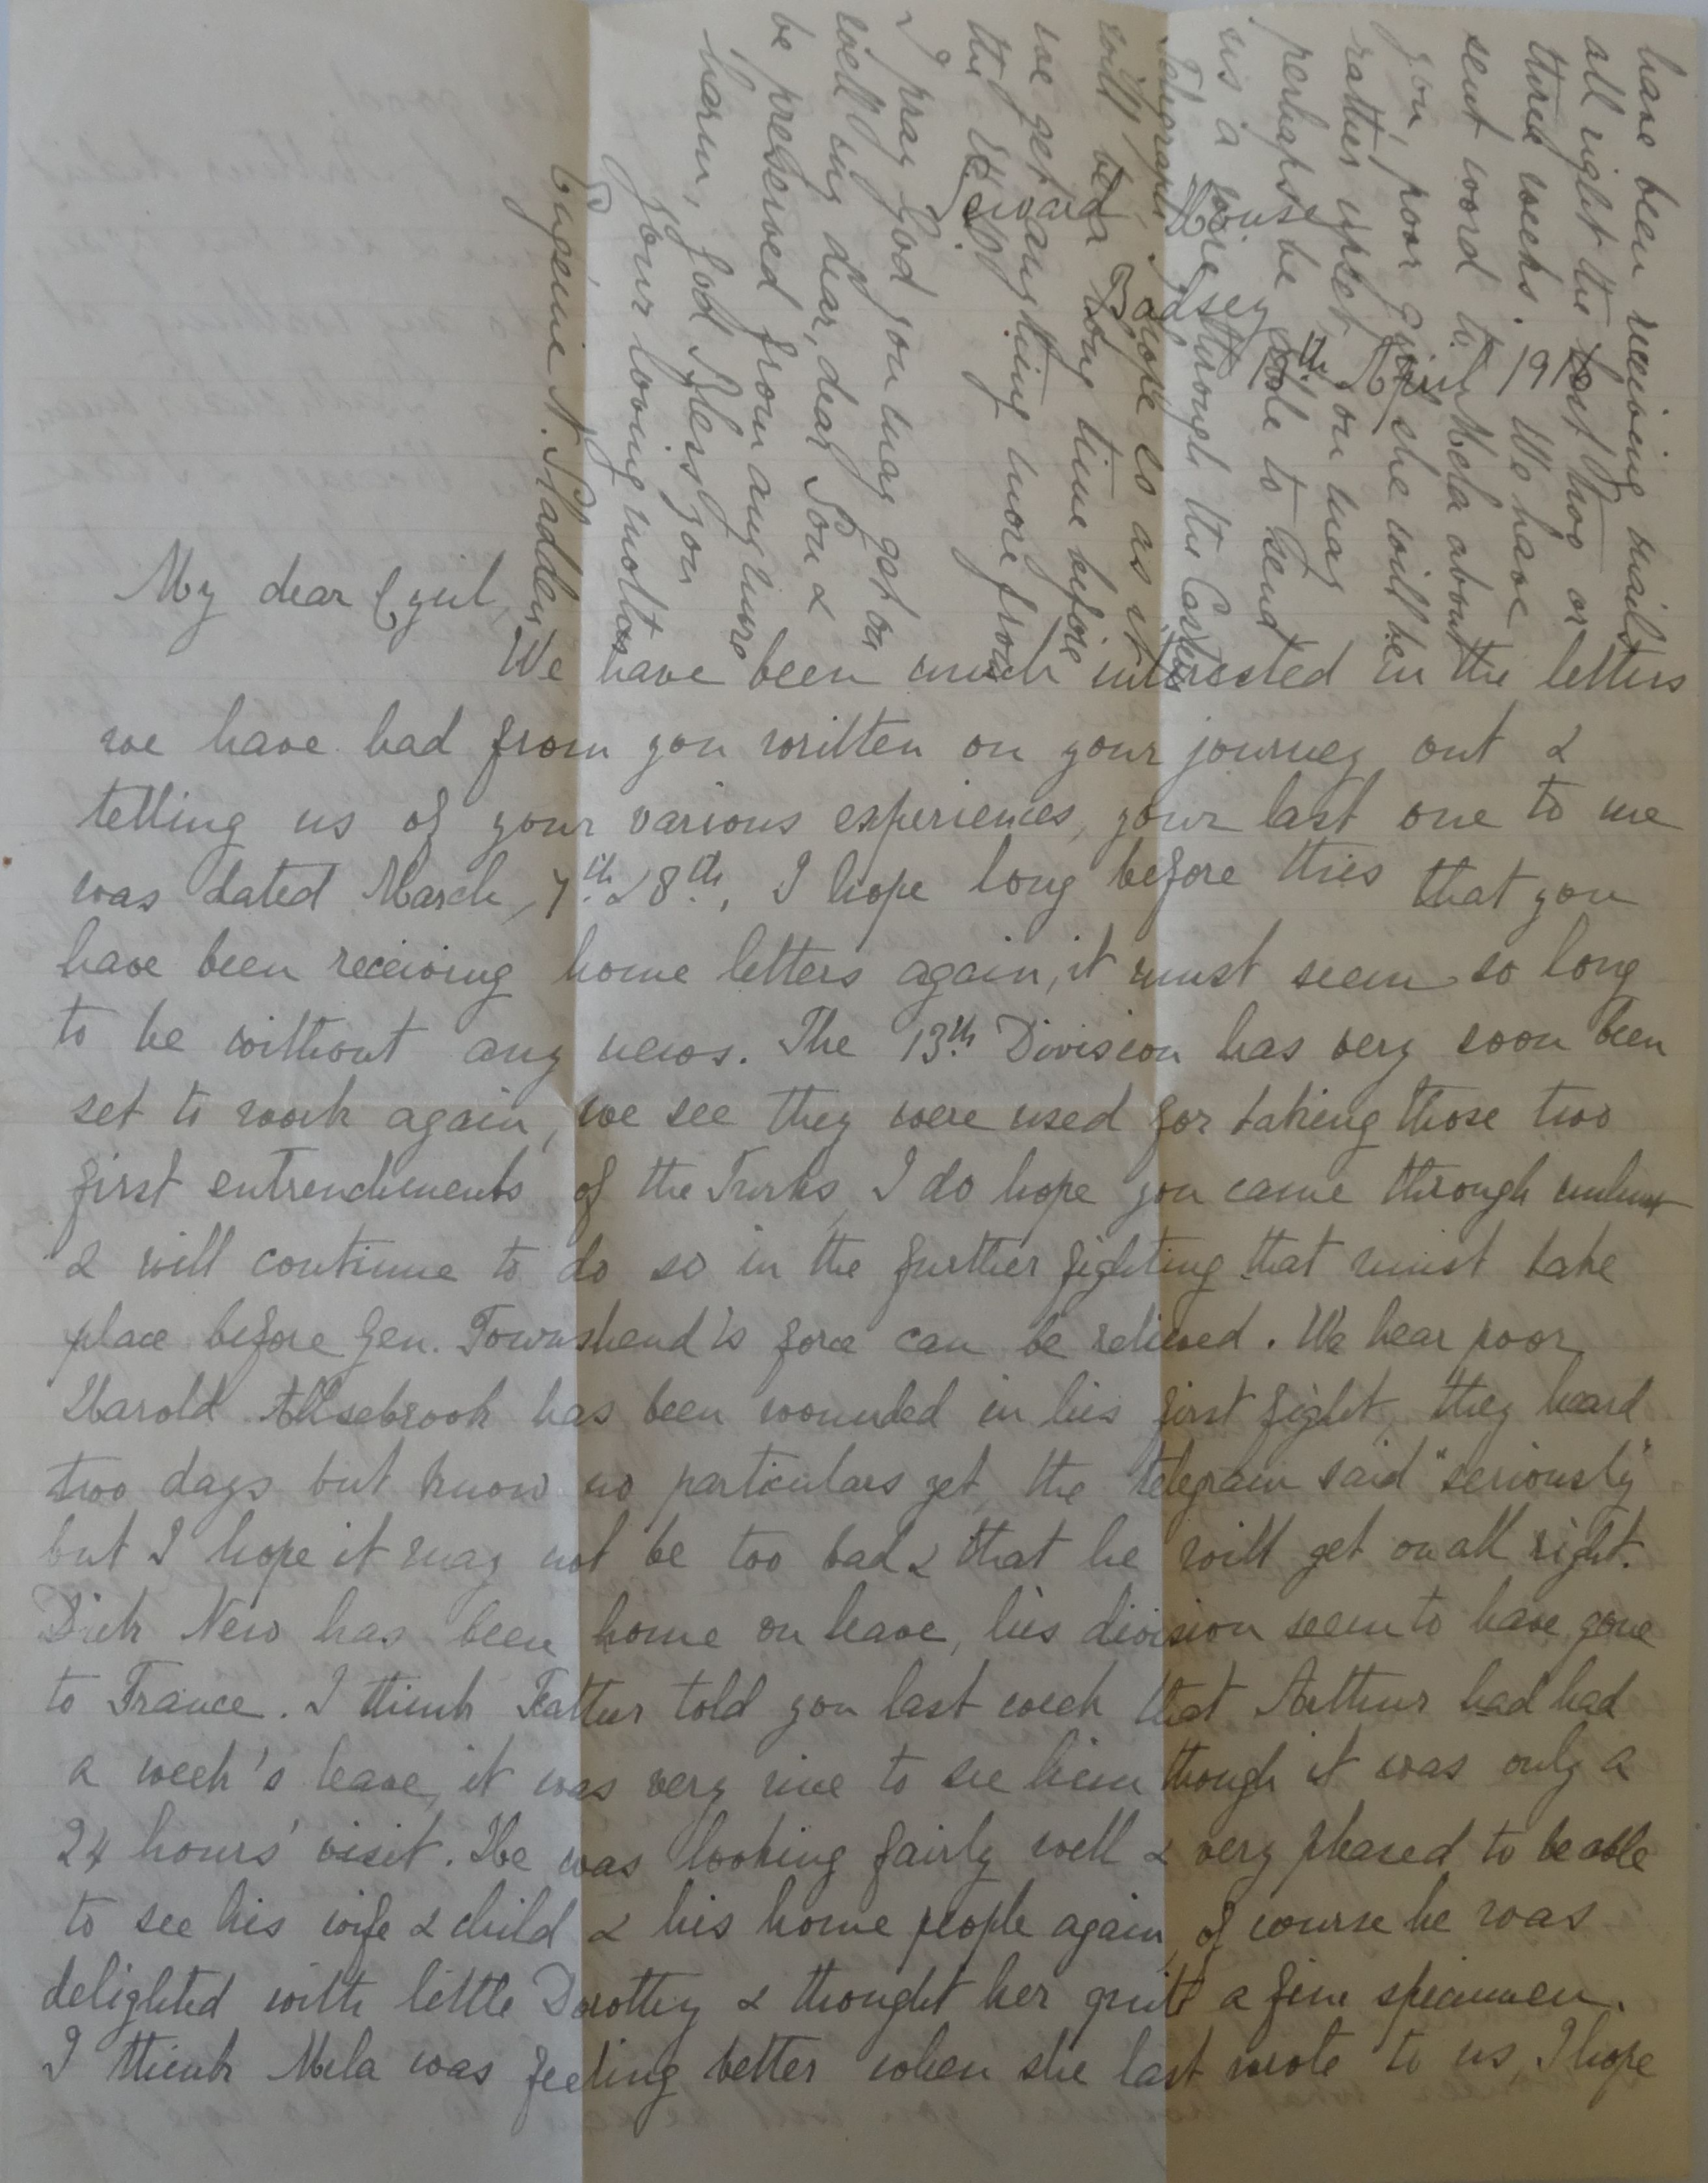 Seward House
Badsey
15th April 1916
My dear Cyril,
We have been much interested in the letters
we have had from you written on your journey out &
telling us of your various experiences, your last one to me
was dated March, 7th & 8th, I hope long before this that you
have been receiving home letters again, it must seem so long
to be without any news. The 13th Division has very soon been
set to work again, we see they were used for taking those two
first entrenchments of the Turks, I do hope you came through unhurt
& will continue to do so in the further fighting that must take
place before Gen. Townshend's force can be relieved. We hear poor
Harold Allsebrook has been wounded in his first fight, they heard
two days but know no particulars yet, the telegram said "seriously"
but I hope it may not be too bad & that he will get on all right.
Dick New has been home on leave, his division seem to have gone
to France. I think Father told you last week that Arthur had had
a week's leave, it was very nice to see him though it was only a
24 hours' visit. He was looking fairly well & very pleased to be able
to see his wife & child & his home people again, of course he was
delighted with little Dorothy & thought her quite a fine specimen.
I think Mela was feeling better when she last wrote to us, I hope
have been receiving mails
all right the last two or
three weeks. We have
sent word to Mela about
you, poor girl she will be
rather upset. You may
perhaps be able to send
us a wire through the Eastern
Telegraph, I hope so as it
will be a long time before
we get anything more from
the W.O.
I pray God you may get on
well my dear, dear Son &
be preserved from any more
harm, God Bless you
Your loving mother
Eugénie N. Sladden